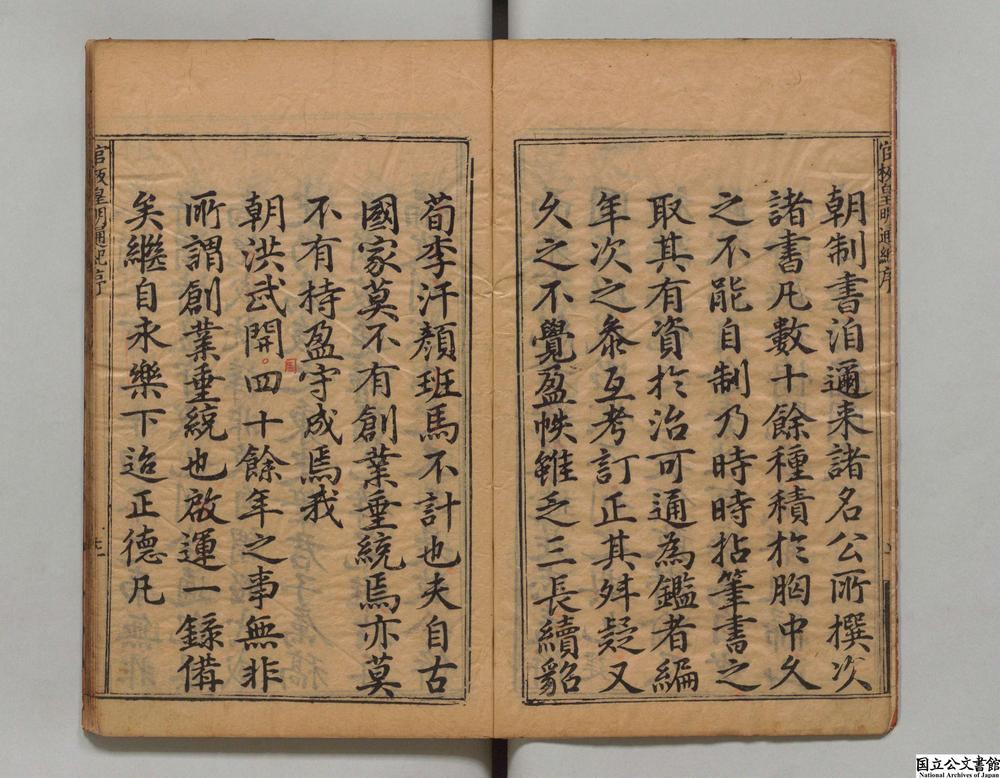 官板皇明通紀序
朝制書洎邇来諸名公所撰次
諸書凡數十餘種積於胸中久
之不能自制乃時時拈筆書之
取其有資於治可通為鑑者編
年次之叅互考訂正其舛疑又
久之不覺盈帙雖乏三長續貂
荀李汗顏班馬不計也夫自古
國家莫不有創業垂統焉亦莫
不有持盈守成焉我
朝洪武開四十餘年之事無非
所謂創業垂統也啟運一錄備
矣繼自永樂下迨正德凡
官板皇明通紀序
国立公文書館
National Archives of Japan